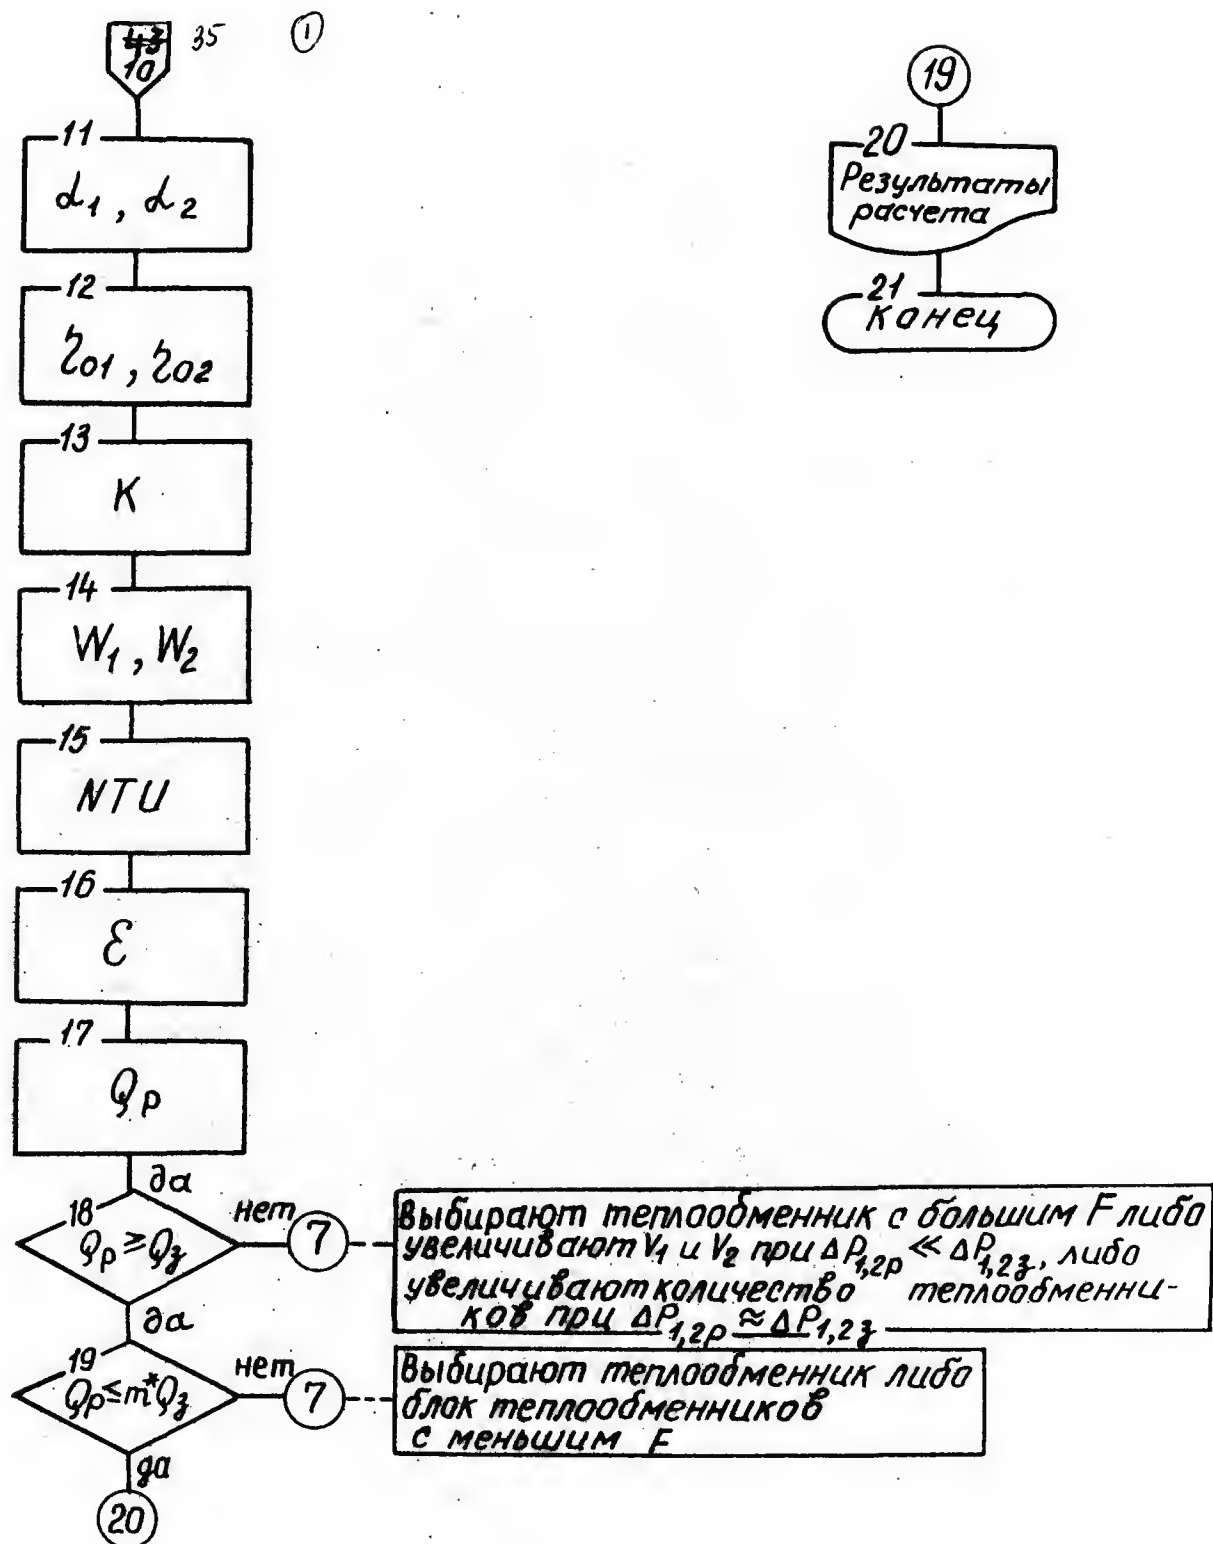 43 35 1
10
11
α₁, α₂
12
η₀₁, η₀₂
13
K
14
W₁, W₂
15
NTU
16
ε
17
Qр
да
18
Qр ≥ Qз
нет
7
Выбирают теплообменник с большим F либо
увеличивают V₁ и V₂ при ΔP₁,₂р ≪ ΔP₁,₂з, либо
увеличивают количество теплообменни-
ков при ΔP₁,₂р ≈ ΔP₁,₂з
да
19
Qр ≤ m*Qз
нет
7
Выбирают теплообменник либо
блок теплообменников
с меньшим F
да
20
19
20
Результаты
расчета
21
Конец